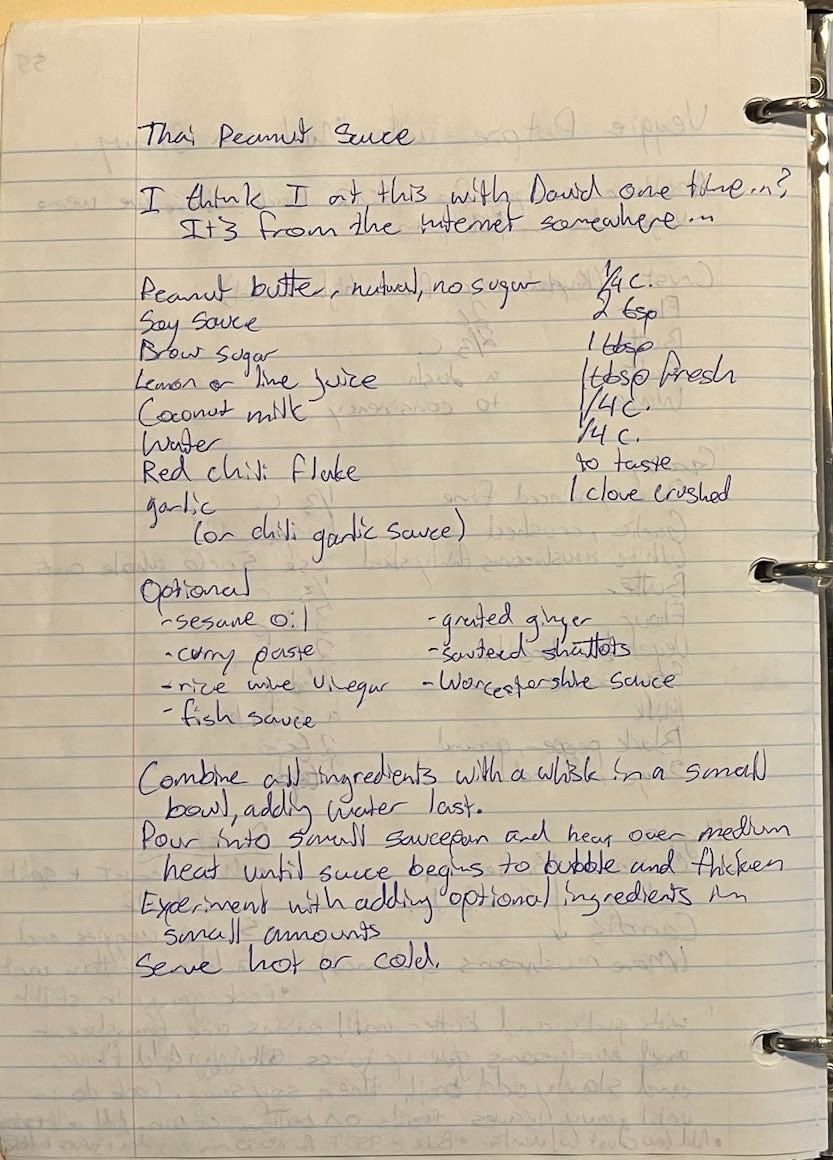 Thai Peanut Sauce
I think I at this with David one time...?
It's from the internet somewhere...
Peanut butter, natural, no sugar 1/4 c.
Soy Sauce 2 tsp
Brow sugar 1 tbsp
Lemon or lime juice 1 tbsp fresh
Coconut milk 1/4 c.
Water 1/4 c.
Red chili flake to taste
garlic 1 clove crushed
(or chili garlic sauce)
Optional
- sesame oil - grated ginger
- curry paste - sauteed shallots
- rice wine vinegar - Worcestershire sauce
- fish sauce
Combine all ingredients with a whisk in a small
bowl, adding water last.
Pour into small saucepan and heat over medium
heat until sauce begins to bubble and thicken
Experiment with adding optional ingredients in
small amounts
Serve hot or cold.